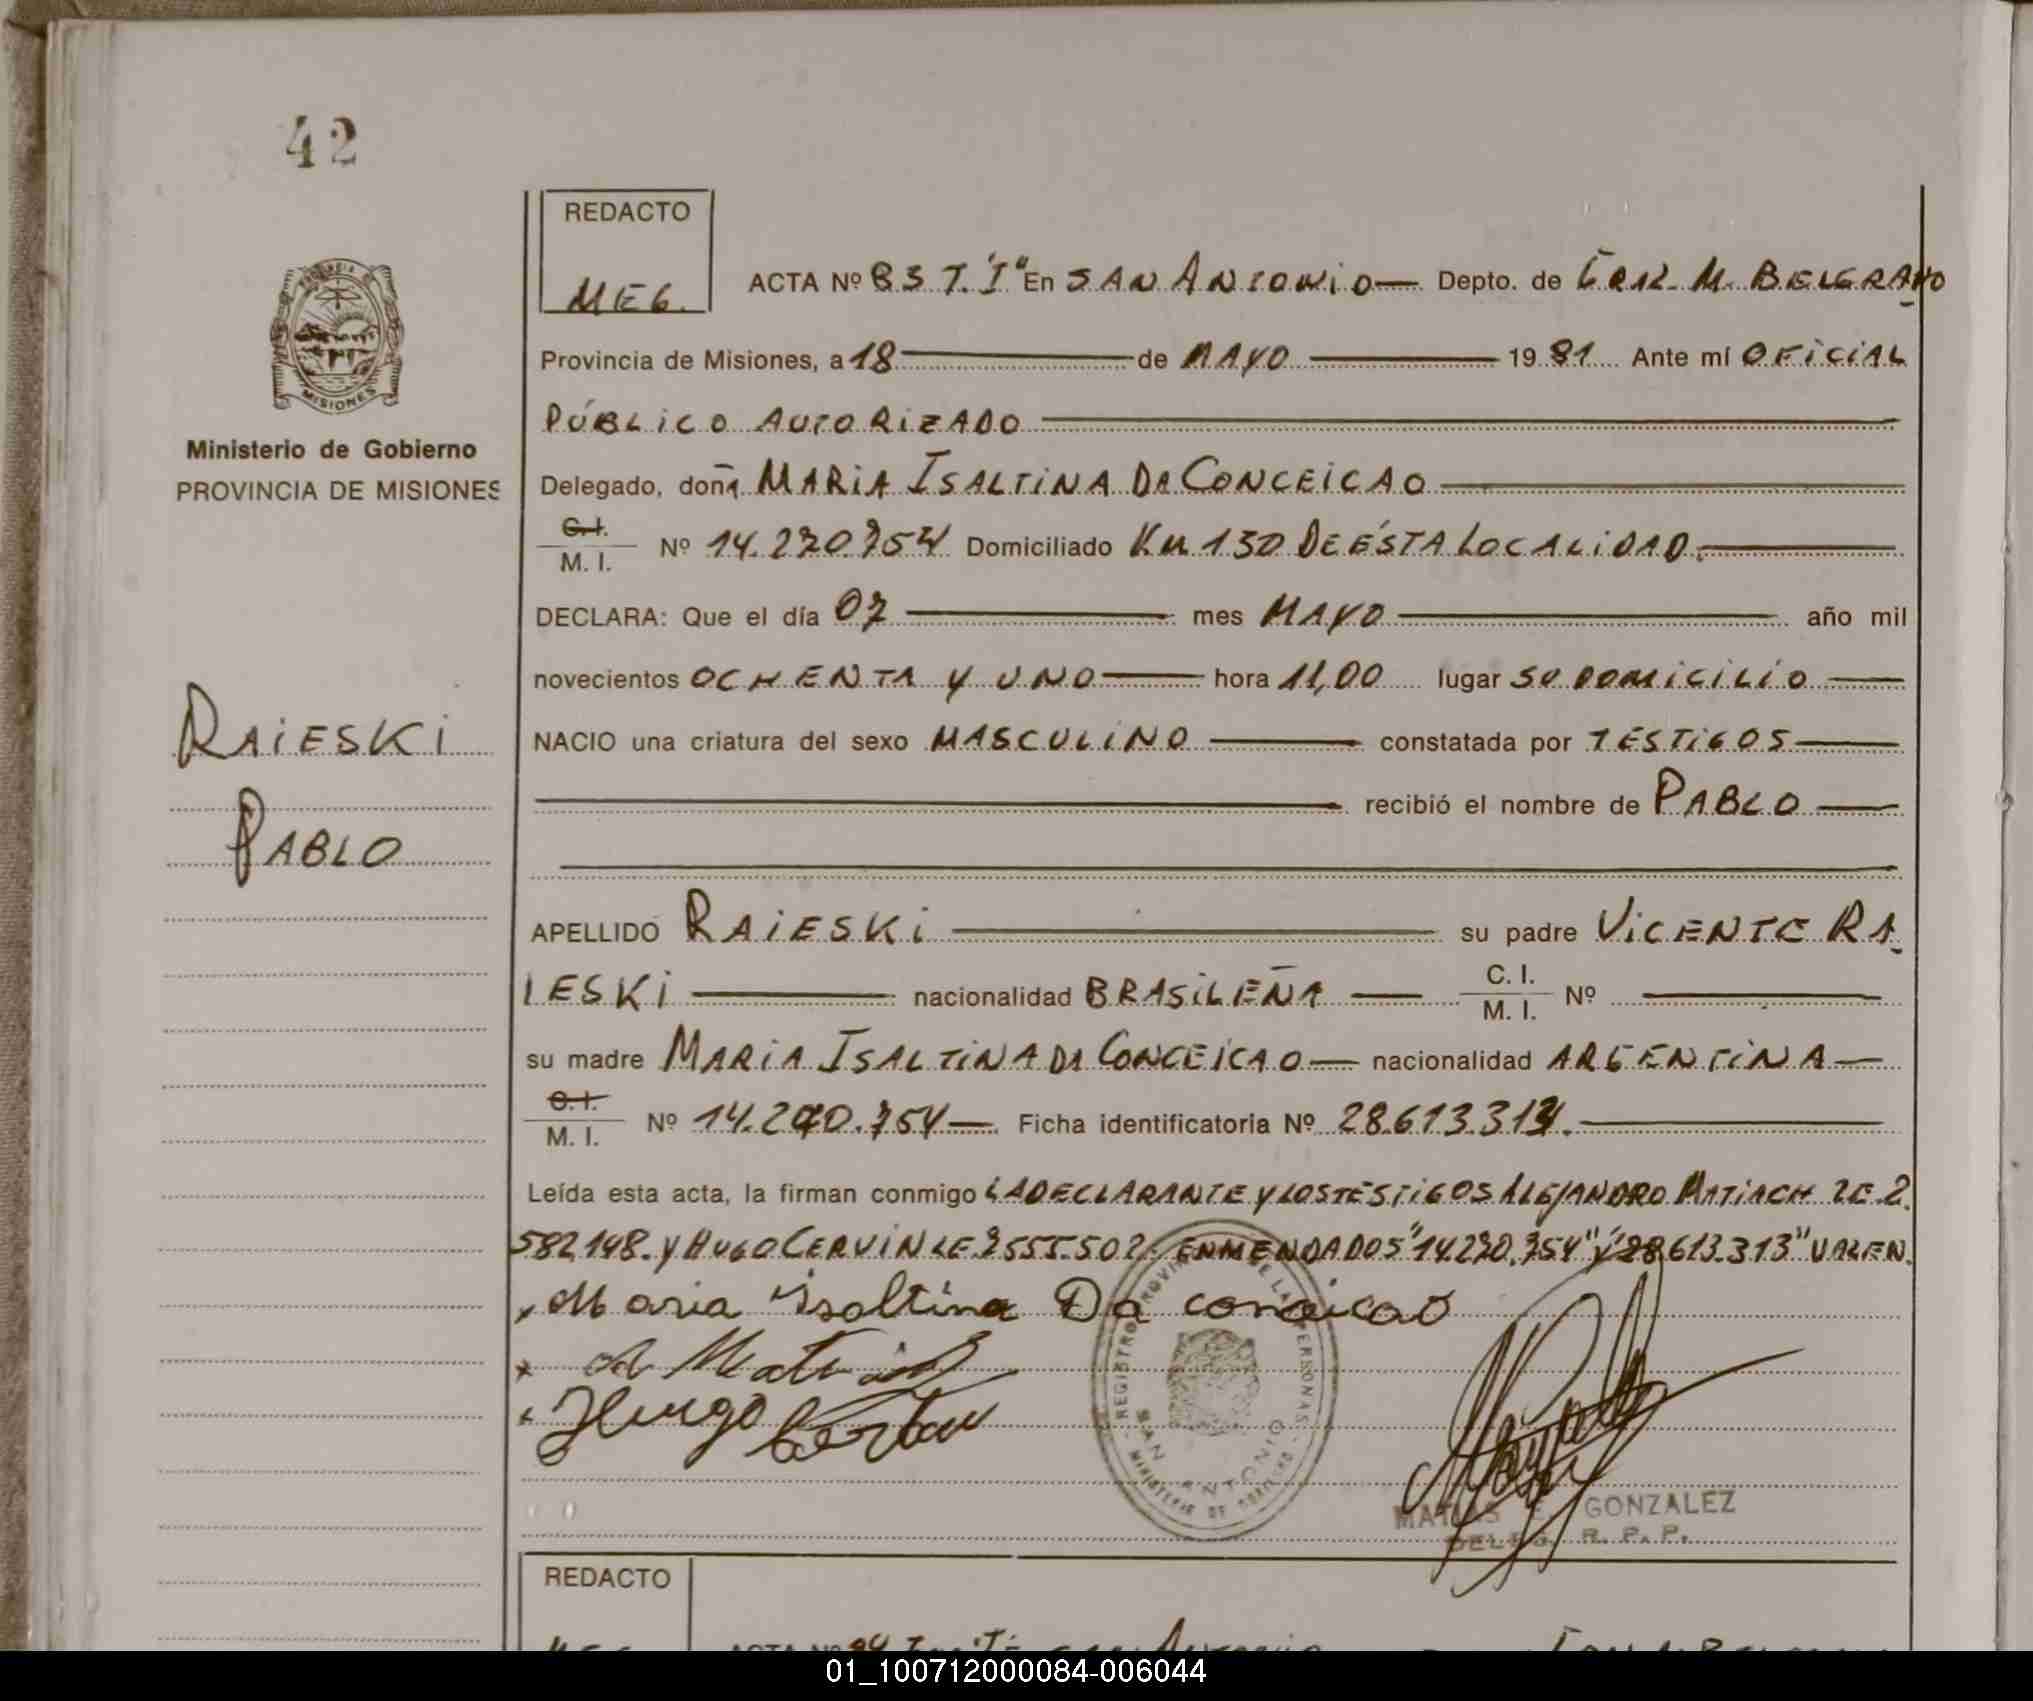 42
REDACTO
MEG.
ACTA Nº 83 T. "I" En SAN ANTONIO — Depto. de GRAL. M. BELGRANO
Provincia de Misiones, a 18 — de MAYO — 1981 Ante mí OFICIAL
PÚBLICO AUTORIZADO
Ministerio de Gobierno
PROVINCIA DE MISIONES
Delegado, doña MARIA ISALTINA DA CONCEICAO
C.I.
M. I. Nº 14.270.754 Domiciliado KM 130 DE ÉSTA LOCALIDAD.
DECLARA: Que el día 07 — mes MAYO — año mil
novecientos OCHENTA Y UNO — hora 11,00 lugar SU DOMICILIO
RAIESKI
PABLO
NACIO una criatura del sexo MASCULINO — constatada por TESTIGOS
recibió el nombre de PABLO
APELLIDO RAIESKI — su padre VICENTE RA
IESKI — nacionalidad BRASILEÑA — C. I. M. I. Nº
su madre MARIA ISALTINA DA CONCEICAO — nacionalidad ARGENTINA
C. I.
M. I. Nº 14.270.754 — Ficha identificatoria Nº 28.613.313.
Leída esta acta, la firman conmigo LA DECLARANTE Y LOS TESTIGOS ALEJANDRO MATIACH LE 2.
582.148. Y HUGO CERVIN LE 7555.502. ENMENDADOS "14.270.754" y "28.613.313" VALEN.
Maria Isaltina Da conceicao
Hugo
REGISTRO PROVINCIAL DE LAS PERSONAS
SAN ANTONIO
MINISTERIO DE GOBIERNO
MATIAS E. GONZALEZ
DELEG. R. P. P.
REDACTO
01_100712000084-006044